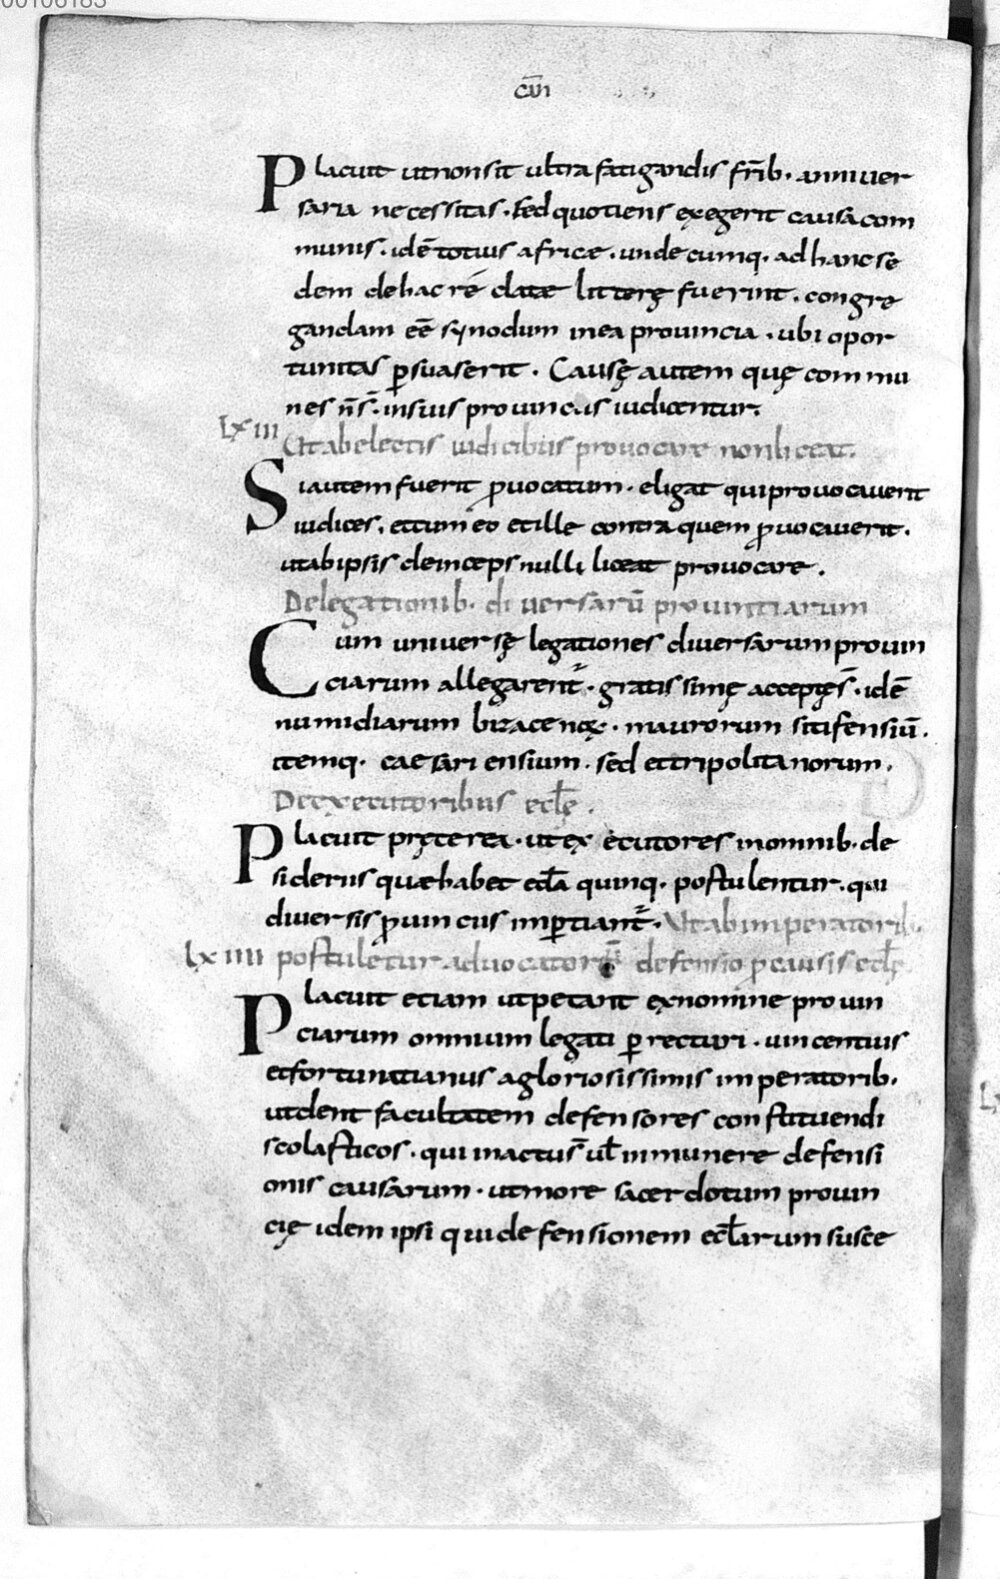 00106183
cōn
Placuit ut non sit ultra fatigandis fr̄ib· anniuer
saria necessitas· Sed quotiens exegerit causa com
munis· idē totius africæ· undecumq· ad hanc se
dem de hac ré datæ litterę fuerint· congre
gandam eē synodum in ea prouincia· ubi opor
tunitas ꝑsuaserit· Causę autem quę commu
nes ns̄· in suis prouinciis iudicentur·
Lxiii Ut ab electis iudicibus prouocare non liceat·
Si autem fuerit ꝓuocatum· eligat qui prouocauerit
iudices· et cum eo et ille contra quem ꝓuocauerit·
ut ab ipsis deinceps nulli liceat prouocare·
De legationib· diuersarū prouintiarum
Cum uniuersę legationes diuersarum prouin
ciarum allegarent᷑· gratissimę acceptęs̄· idē
numidiarum bizacenæ· maurorum sitifensiū·
itemq· caesariensium· sed et tripolitanorum·
De executoribus eclę̄·
Placuit pręterea· ut executores in omnib· de
sideriis quæ habet ecl̄a quinq· postulentur· qui
diuersis ꝓuinciis inꝑtiant᷑· Ut ab imperatorib·
Lxiiii postuletur aduocatorū defensio ꝓ causis ecl̄ę
Placuit etiam ut petant ex nomine prouin
ciarum omnium legati ꝑrecturi· uincentius
et fortunatianus a gloriosissimis imperatorib·
ut dent facultatem defensores constituendi
scolasticos· qui in actus̄ ul̄ in munere defensi
onis causarum· ut more sacerdotum prouin
cię idem ipsi qui defensionem ecl̄arum susce